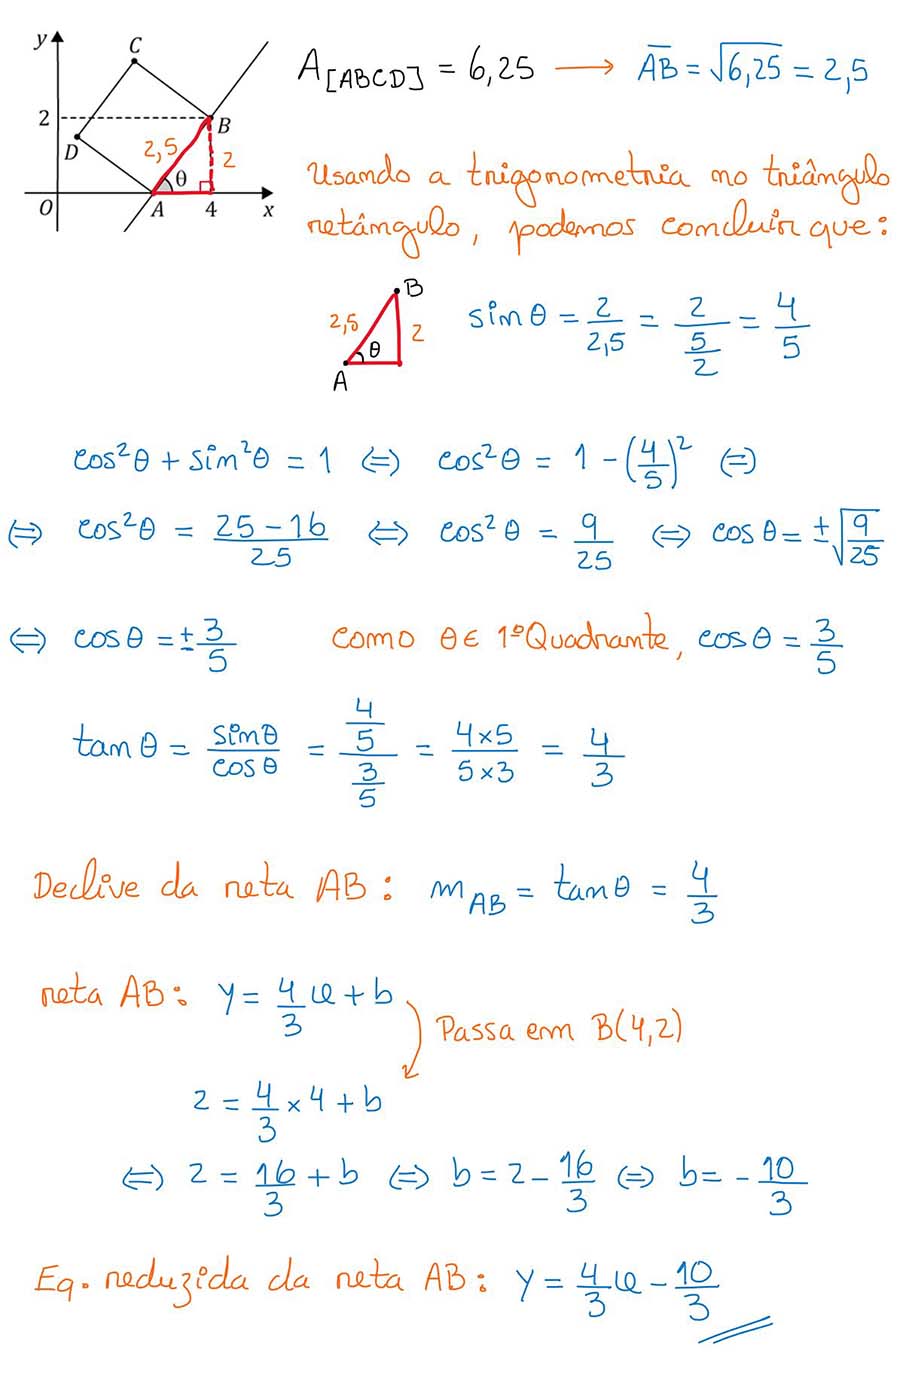 y
C
2
B
D
2,5
2
θ
O
A
4
x
A[ABCD] = 6,25 ⟶ A̅B̅ = √6,25 = 2,5
Usando a trigonometria no triângulo
retângulo, podemos concluir que:
B
2,5
2
θ
A
sin θ = 2/2,5 = 2/(5/2) = 4/5
cos²θ + sin²θ = 1 ⇔ cos²θ = 1 − (4/5)² ⇔
⇔ cos²θ = (25 − 16)/25 ⇔ cos²θ = 9/25 ⇔ cos θ = ±√(9/25)
⇔ cos θ = ± 3/5 como θ ∈ 1º Quadrante, cos θ = 3/5
tan θ = sin θ/cos θ = (4/5)/(3/5) = (4×5)/(5×3) = 4/3
Declive da reta AB: mAB = tan θ = 4/3
reta AB: y = 4/3 x + b
Passa em B(4,2)
2 = 4/3 × 4 + b
⇔ 2 = 16/3 + b ⇔ b = 2 − 16/3 ⇔ b = − 10/3
Eq. reduzida da reta AB: y = 4/3 x − 10/3